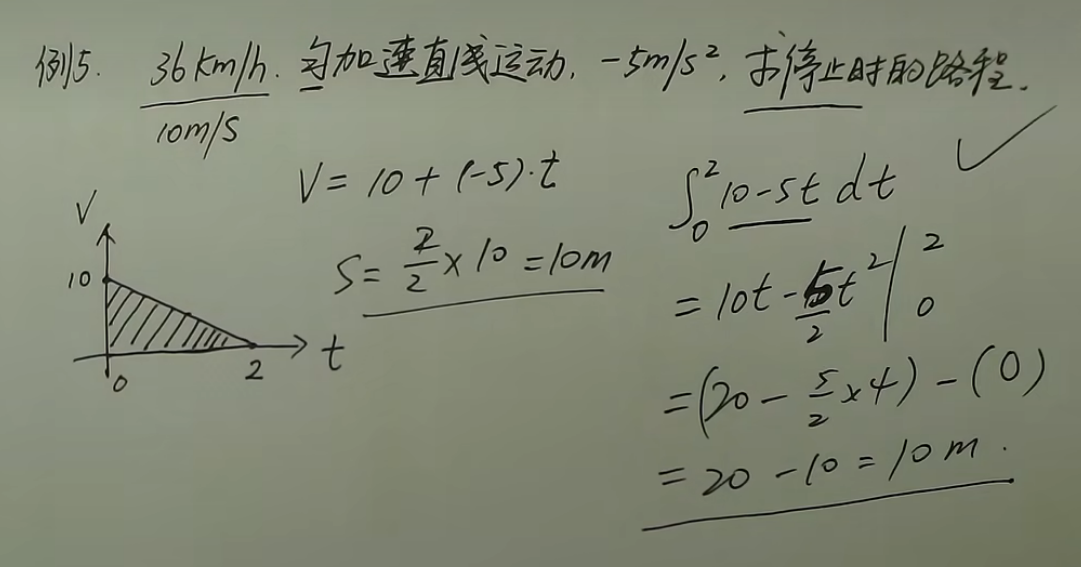 例5. 36km/h. 匀加速直线运动, -5m/s², 求停止时的路程.
10m/s
V = 10 + (-5)·t
S = 2/2 × 10 = 10m
V
10
0
2
t
∫₀² 10-5t dt
= 10t - 5/2 t² |₀²
= (20 - 5/2 × 4) - (0)
= 20 - 10 = 10m.